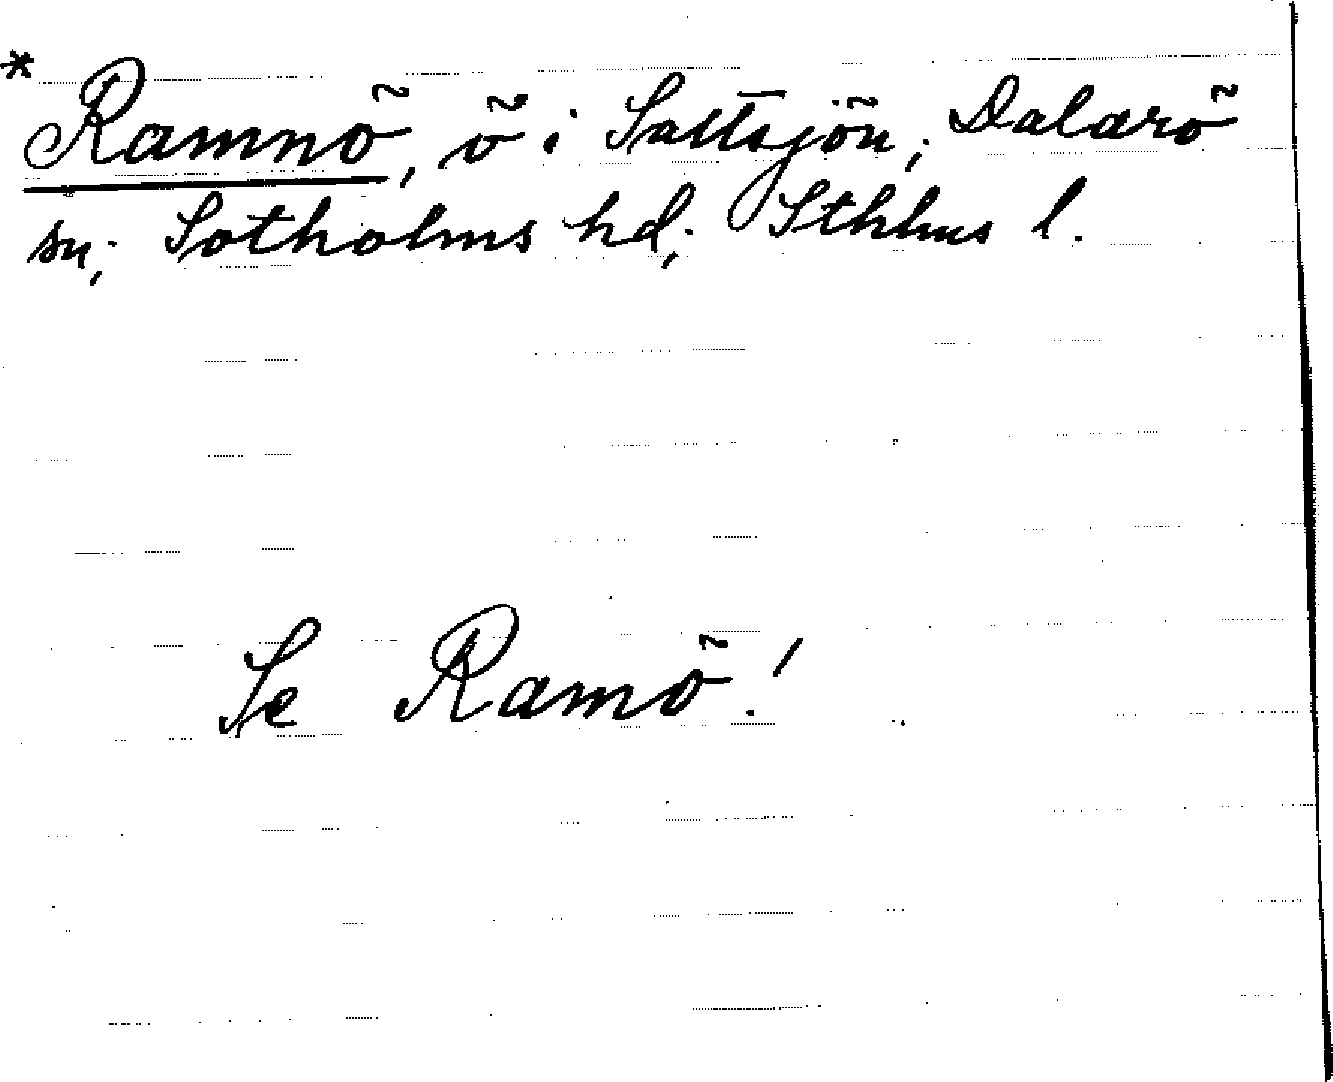 * Ramnö, ö i Saltsjön; Dalarö
sn; Sotholms hd; Sthlms l.
Se Ramö!